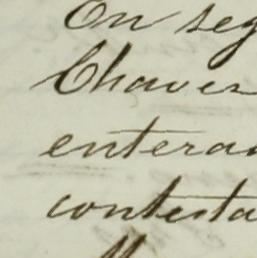 On seg
Chaves
entera
contesta